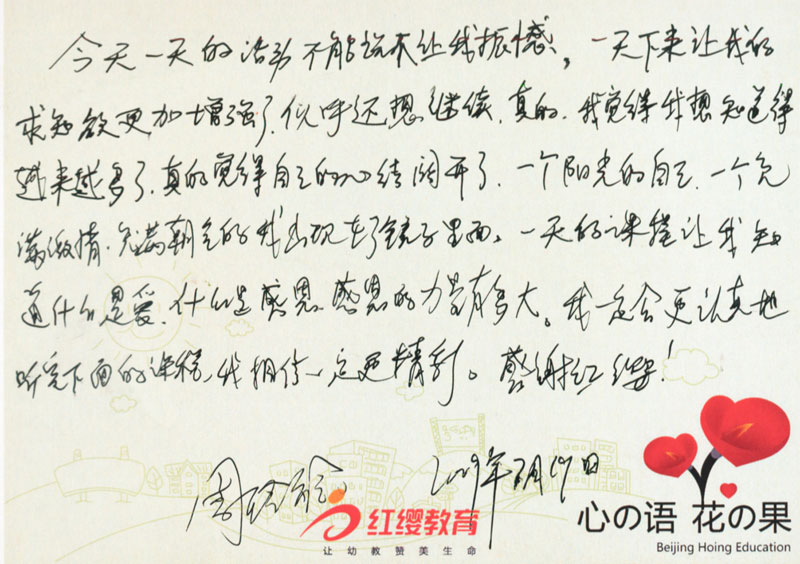 今天一天的活动不能说不让我振憾，一天下来让我的
求知欲更加增强了，似乎还想继续，真的，我觉得我想知道得
越来越多了，真的觉得自己的心结阔开了，一个阳光的自己，一个充
满激情，充满朝气的我出现在了镜子里面。一天的课程让我知
道什么是爱，什么是感恩，感恩的力量有多大。我一定会更认真地
听完下面的课程，我相信一定更精彩。感谢红缨！
2009年 月 日
红缨教育
让幼教赞美生命
心の语 花の果
Beijing Hoing Education